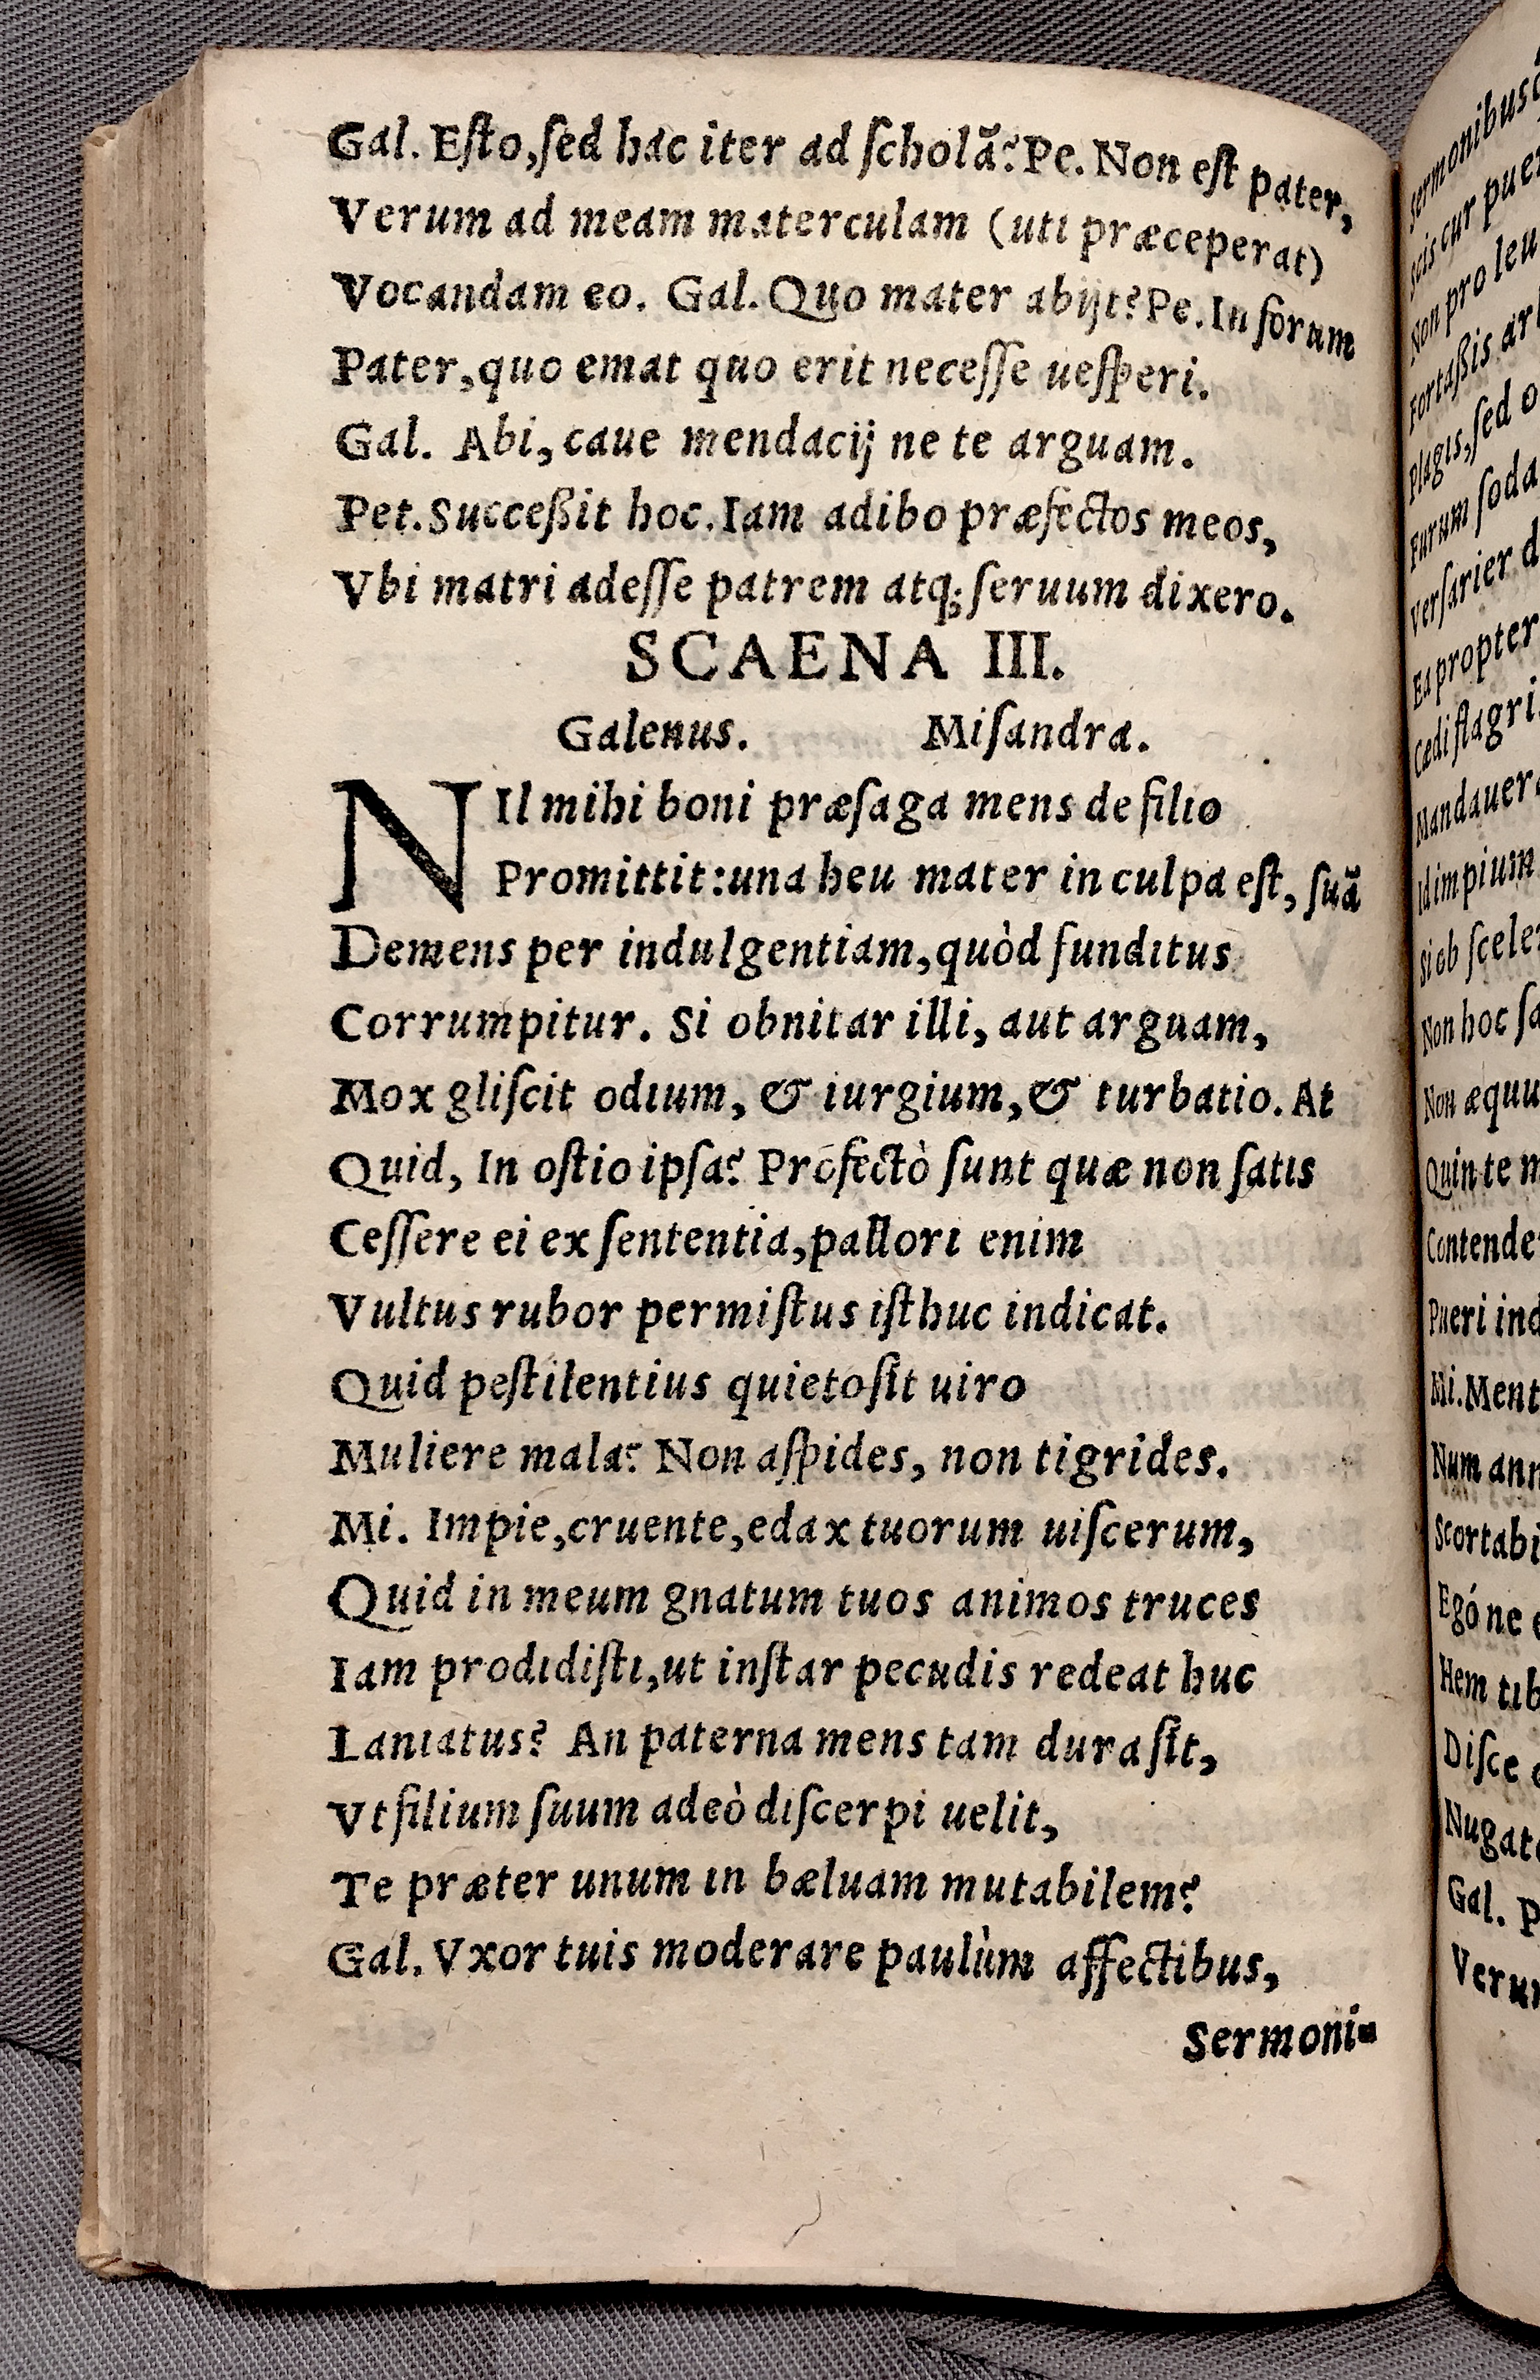 Gal. Eſto, ſed hac iter ad ſcholã? Pe. Non eſt pater,
Verum ad meam materculam (uti præceperat)
Vocandam eo. Gal. Quo mater abijt? Pe. In forum
Pater, quo emat quo erit neceſſe ueſperi.
Gal. Abi, caue mendacij ne te arguam.
Pet. Succeßit hoc. Iam adibo præfectos meos,
Vbi matri adeſſe patrem atq; ſeruum dixero.
SCAENA III.
Galenus. Miſandra.
NIl mihi boni præſaga mens de filio
Promittit: una heu mater in culpa eſt, ſuã
Demens per indulgentiam, quòd funditus
Corrumpitur. Si obnitar illi, aut arguam,
Mox gliſcit odium, & iurgium, & turbatio. At
Quid, In oſtio ipſa? Profectò ſunt quæ non ſatis
Ceſſere ei ex ſententia, pallori enim
Vultus rubor permiſtus iſthuc indicat.
Quid peſtilentius quieto ſit uiro
Muliere mala? Non aſpides, non tigrides.
Mi. Impie, cruente, edax tuorum uiſcerum,
Quid in meum gnatum tuos animos truces
Iam prodidiſti, ut inſtar pecudis redeat huc
Laniatus? An paterna mens tam dura ſit,
Vt filium ſuum adeò diſcerpi uelit,
Te præter unum in bæluam mutabilem?
Gal. Vxor tuis moderare paulùm affectibus,
Sermoni-
ſermonibusq
Scis cur puer
Non pro leu
Fortaßis ar
Plagis, ſed o
Furum ſoda
Verſarier d
Ea propter
Cædi flagri
Mandauer
Id impium
Si ob ſcele
Non hoc ſa
Non æquu
Quin te m
Contende
Pueri ind
Mi. Ment
Num ann
Scortabi
Egóne
Hem tib
Diſce
Nugat
Gal. P
Verum